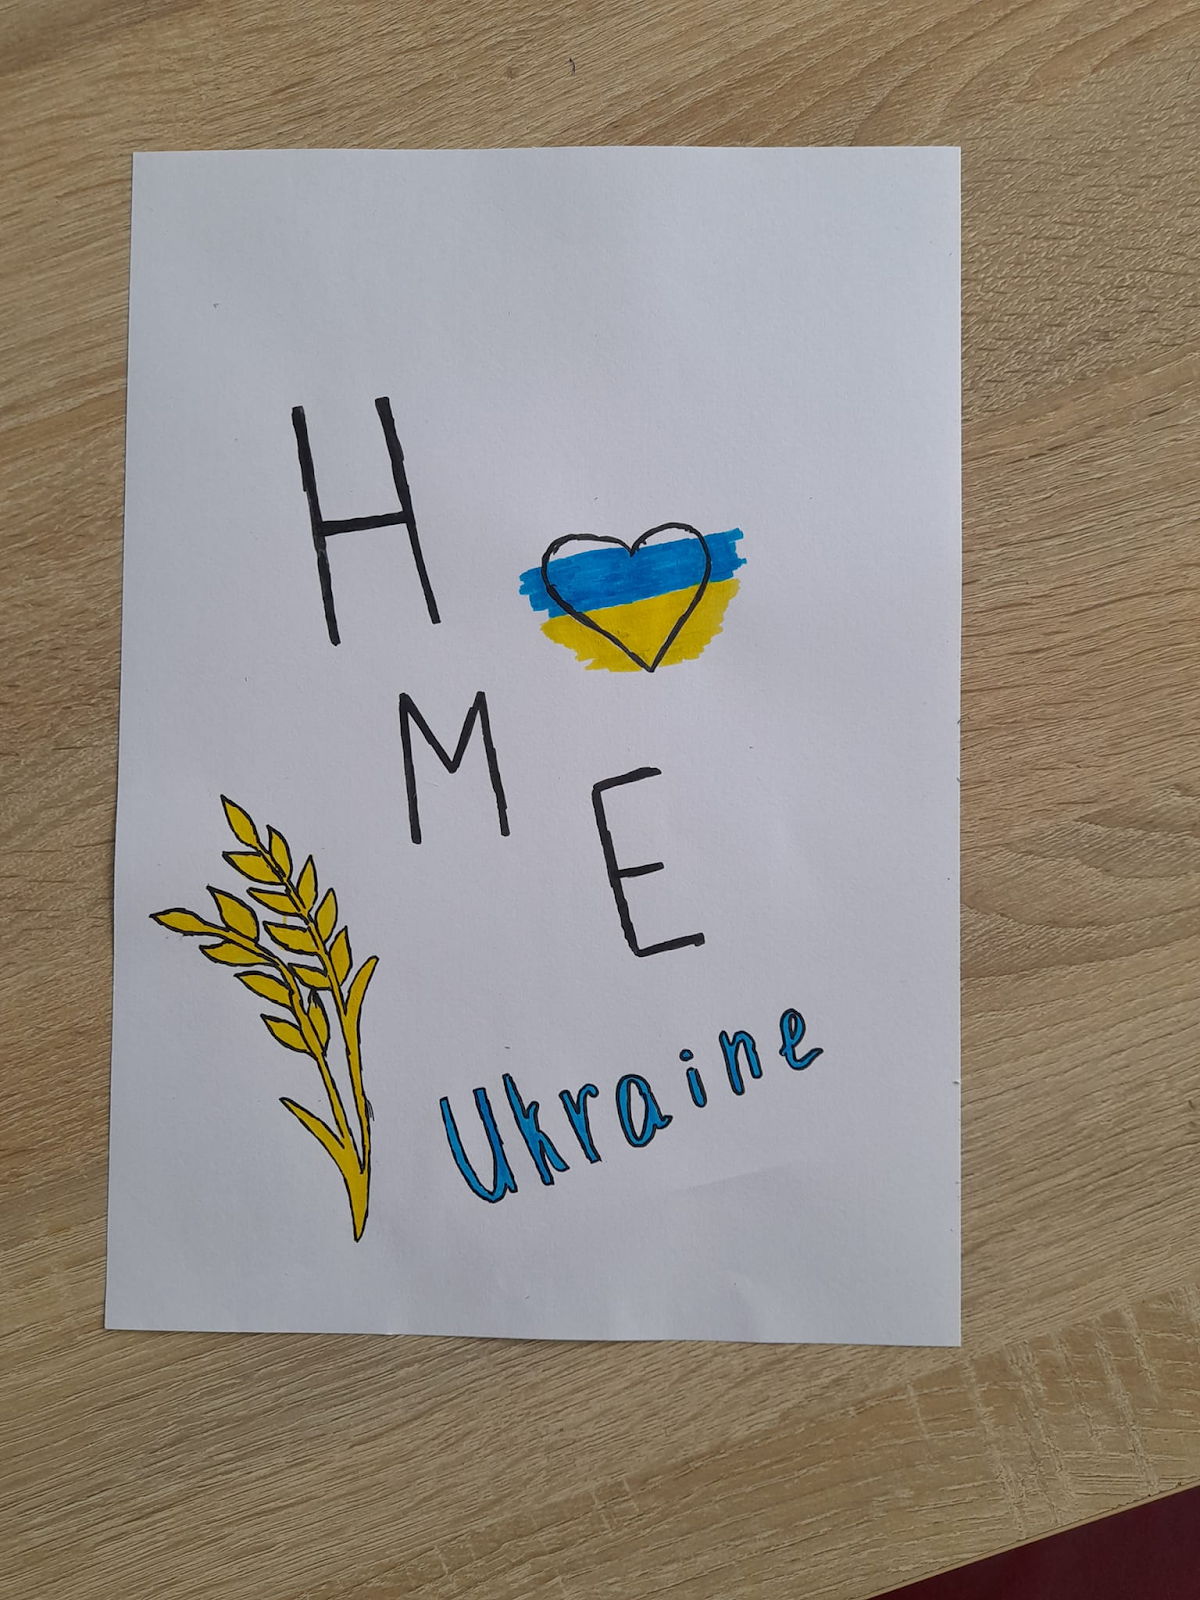 H
M E
Ukraine